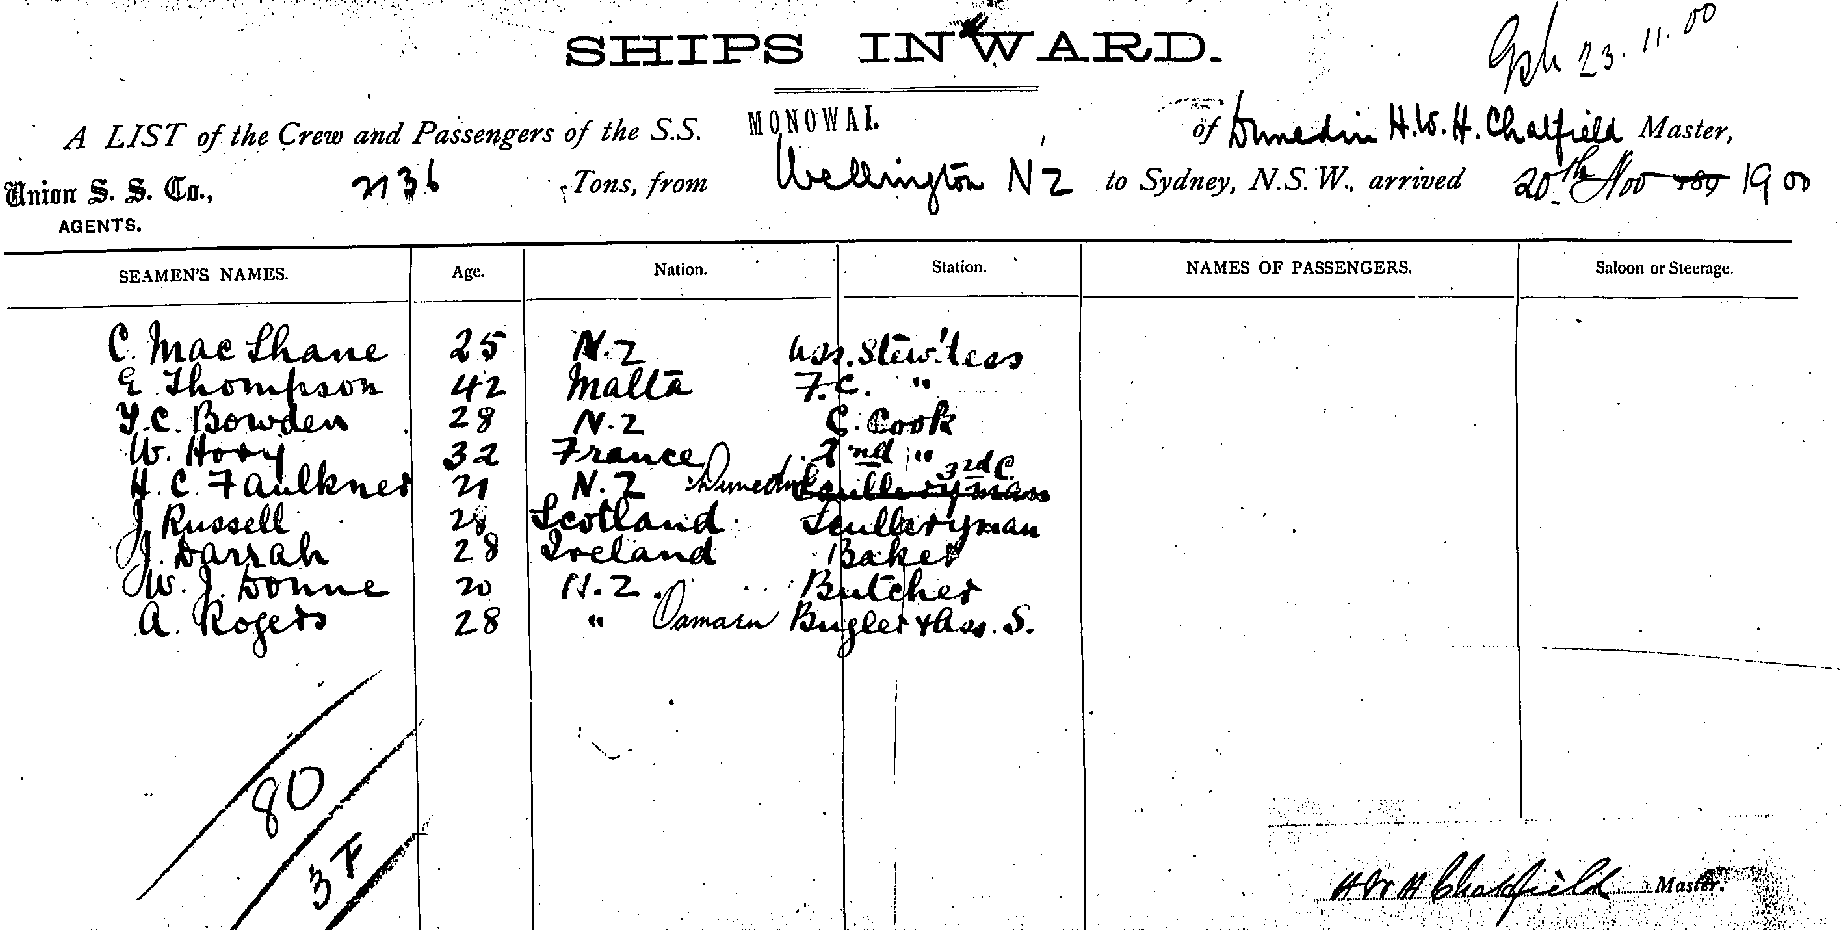 SHIPS INWARD.
23.11.00
A LIST of the Crew and Passengers of the S.S. MONOWAI. of Dunedin H.W.H. Chatfield Master,
Union S. S. Co., 2136 Tons, from Wellington NZ to Sydney, N.S.W., arrived 20th Nov 189 1900
AGENTS.
SEAMEN'S NAMES. Age. Nation. Station. NAMES OF PASSENGERS. Saloon or Steerage.
C. MacShane 25 N.Z Ass. Stew'dess
E Thompson 42 Malta F.C. "
Y.C. Bowden 28 N.Z C. Cook
W. Hovy 32 France 2nd "
H. C. Faulkner 21 N.Z Dunedin Sculleryman 3rd C
J. Russell 28 Scotland Sculleryman
J. Darrah 28 Ireland Baker
W. J. Donne 20 N.Z. Butcher
A. Rogers 28 " Oamaru Bugler & Ass. S.
80
3 F
H W H Chatfield Master.